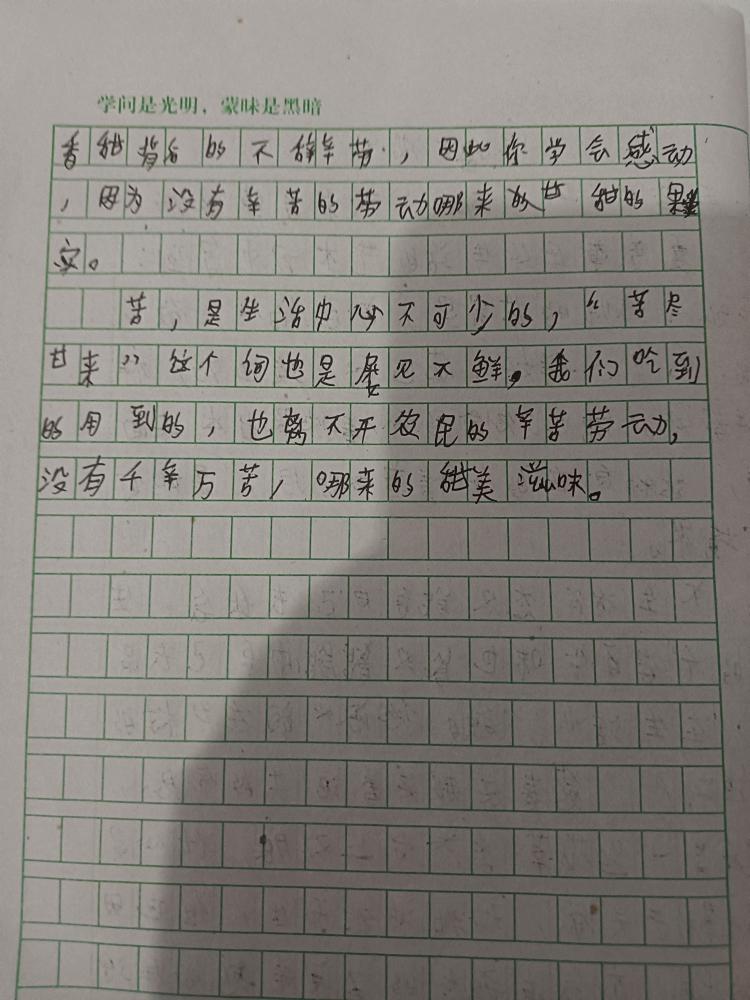 学问是光明，蒙昧是黑暗
香甜背后的不辞辛劳，因此你学会感动
，因为没有辛苦的劳动哪来的甘甜的果
实。
苦，是生活中必不可少的，“苦尽
甘来”这个词也是屡见不鲜。我们吃到
的用到的，也离不开农民的辛苦劳动，
没有千辛万苦，哪来的甜美滋味。